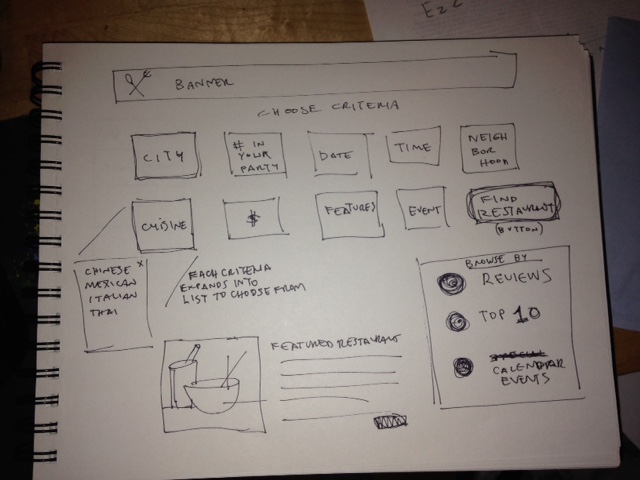 Ezz
BANNER
CHOOSE CRITERIA
CITY
# IN
YOUR
PARTY
DATE
TIME
NEIGH
BOR
HOOD
CUISINE
$
FEATURES
EVENT
FIND
RESTAURANT
(BUTTON)
CHINESE X
MEXICAN
ITALIAN
THAI
EACH CRITERIA
EXPANDS INTO
LIST TO CHOOSE FROM
BROWSE BY
REVIEWS
TOP 10
SPECIAL
CALENDAR
EVENTS
FEATURED RESTAURANT